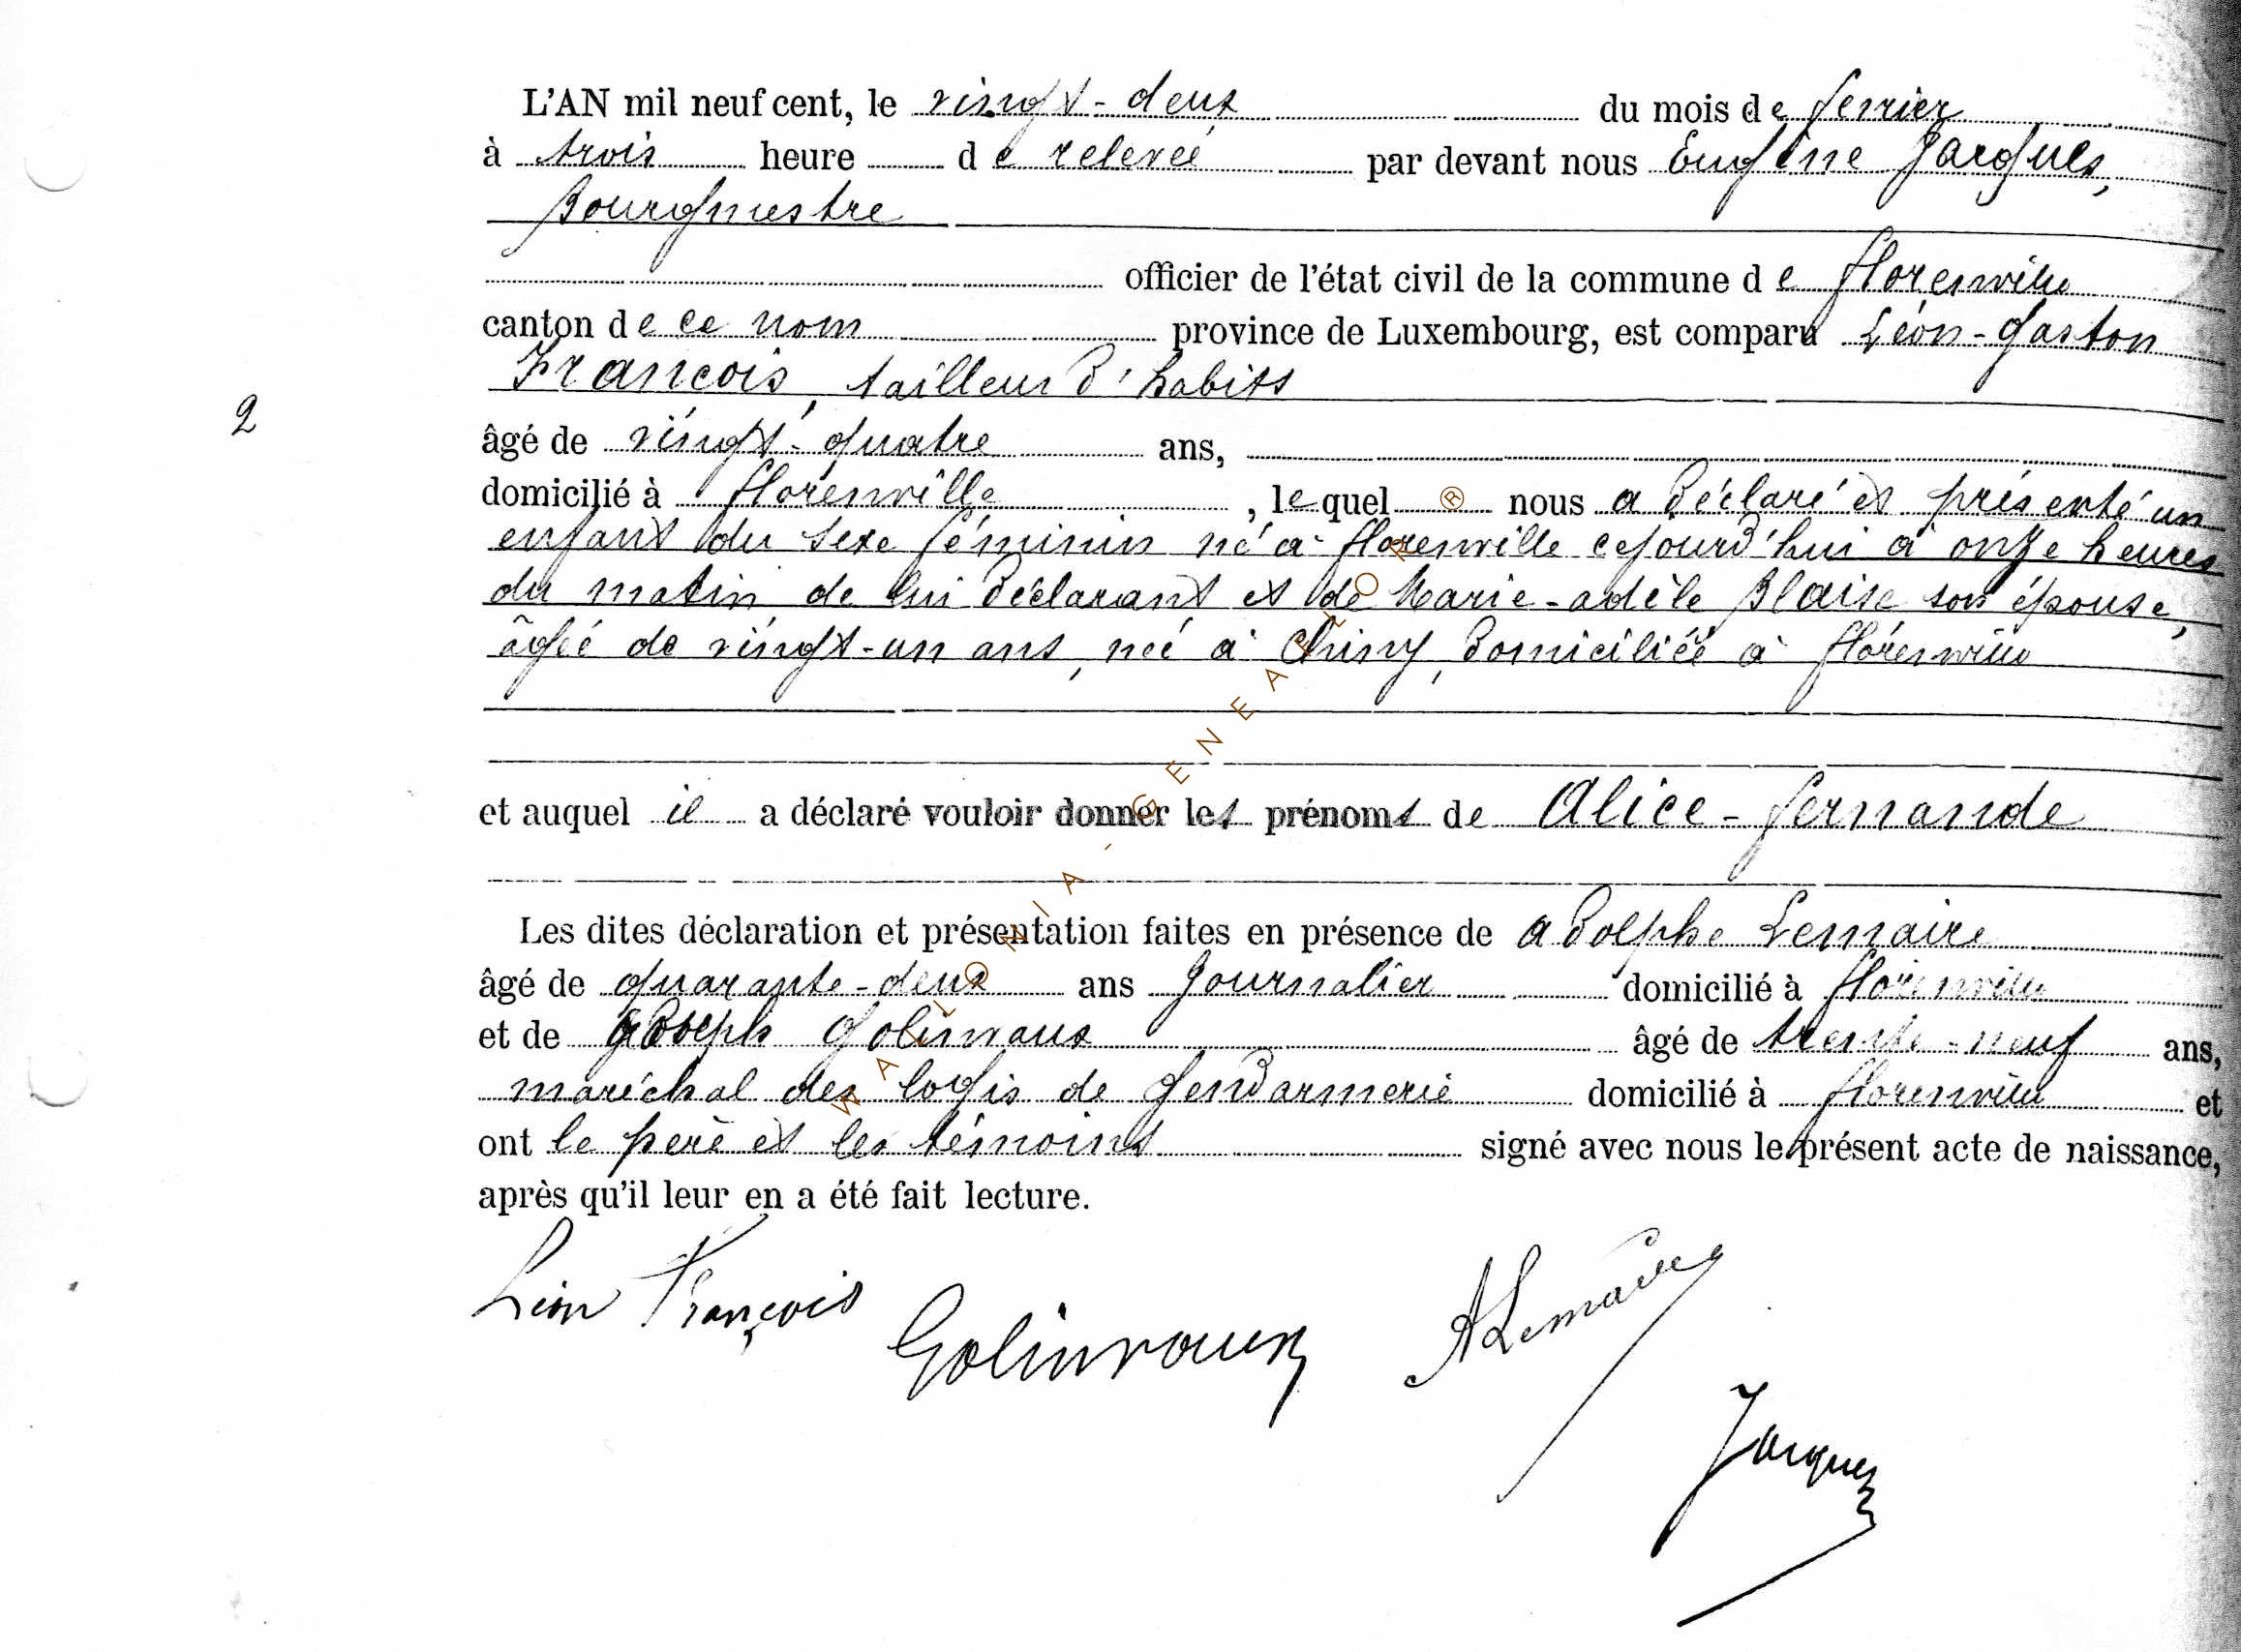 L'AN mil neuf cent, le vingt-deux du mois de fevrier
à trois heure de relevée par devant nous Eugène Jacques,
Bourgmestre
officier de l'état civil de la commune de florenville
canton de ce nom province de Luxembourg, est comparu Léon-Gaston
François, tailleur d'habits
2
âgé de vingt-quatre ans,
domicilié à florenville, lequel ® nous a déclaré et présenté un
enfant du sexe féminin né à florenville cejourd'hui à onze heures
du matin de lui déclarant et de Marie-adèle Blaise son épouse,
âgée de vingt-un ans, née à Chiny, domiciliée à florenville
et auquel il a déclaré vouloir donner les prénoms de Alice-fernande
Les dites déclaration et présentation faites en présence de adolphe Lemaire
âgé de quarante-deux ans Journalier domicilié à florenville
et de Joseph Golinvaux âgé de trente-neuf ans,
maréchal des logis de gendarmerie domicilié à florenville et
ont le père et les témoins signé avec nous le présent acte de naissance,
après qu'il leur en a été fait lecture.
Léon François
Golinvaux
ALemaire
Jacques
WALLONIA-GENEALOR